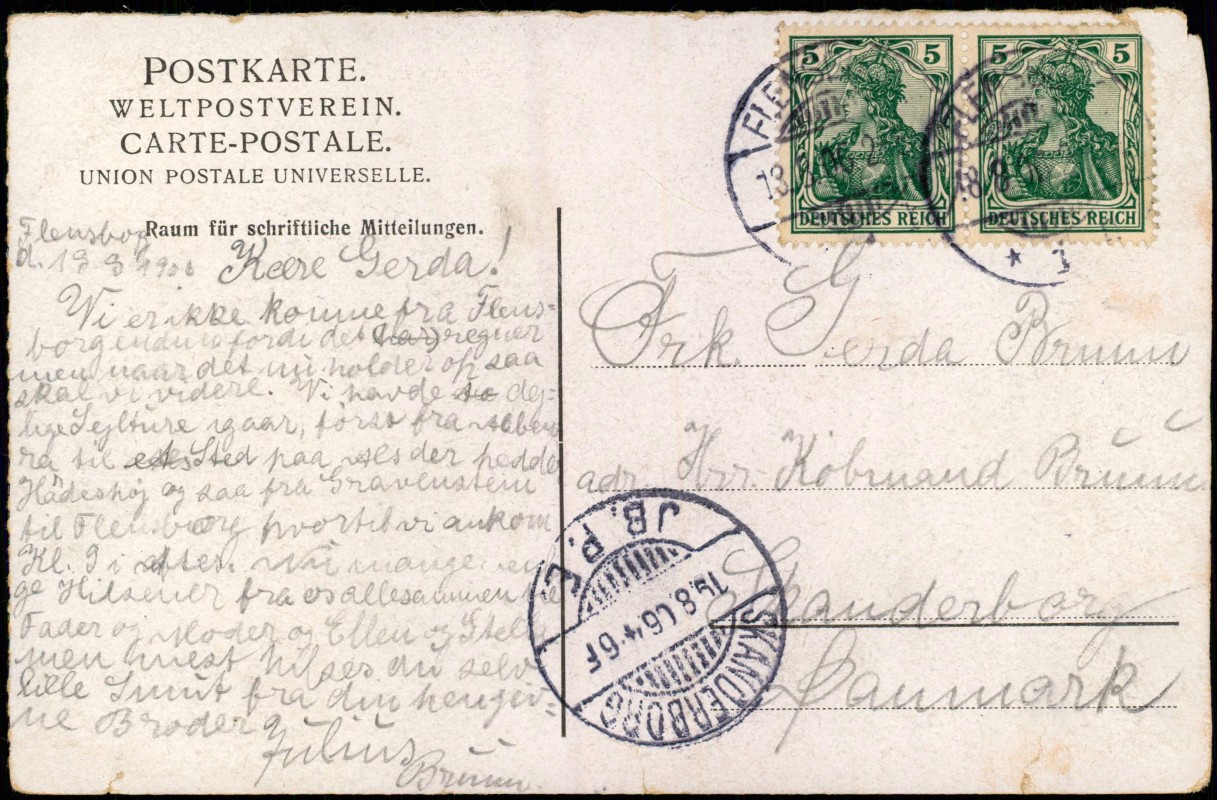 POSTKARTE.
WELTPOSTVEREIN.
CARTE-POSTALE.
UNION POSTALE UNIVERSELLE.
Raum für schriftliche Mitteilungen.
Flensbog
d. 18 8 1906
Kære Gerda!
Vi er ikke komne fra Flens-
borg endnu fordi det regner
men naar det nu holder op saa
skal vi videre. Vi havde to dej-
lige Sejlture igaar, først fra Abben
ra til Sted paa Als der hedde
Hädeshoj og saa fra Gravenstein
til Flensborg hvortil vi ankom
Kl. 9 i aftes. Nu mange ven
ge Hilsener fra os allesammen til
Fader og Moder og Ellen og
men mest hilses du selv
lille fra din hengiv-
ne Broder
Julius
Bruun
5 5
DEUTSCHES REICH DEUTSCHES REICH
FLENS
18.8.06
FLE
18.8
* 1
Frk. Gerda Bruun
adr. Hrr Kobmand Bruun
Skanderborg
Danmark
JB.P.E
19.8.06 4-6F
SKANDERBORG